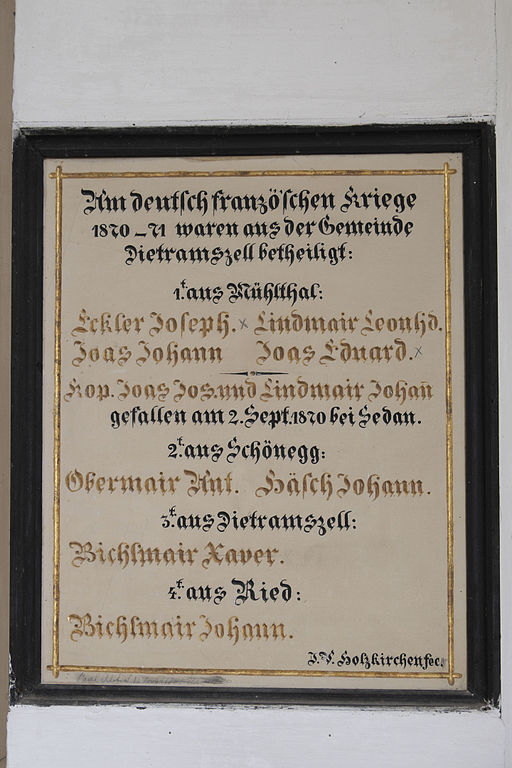 Am deutsch französchen Kriege
1870-71 waren aus der Gemeinde
Dietramszell betheiligt:
1t. aus Mühlthal:
Eckler Joseph. x Lindmair Leonhd.
Joas Johann Joas Eduard. x
Kop. Joas Jos. und Lindmair Johañ
gefallen am 2. Sept. 1870 bei Sedan.
2t. aus Schönegg:
Obermair Ant. Häsch Johann.
3t. aus Dietramszell:
Bichlmair Xaver.
4t. aus Ried:
Bichlmair Johann.
Holzkirchen fec.